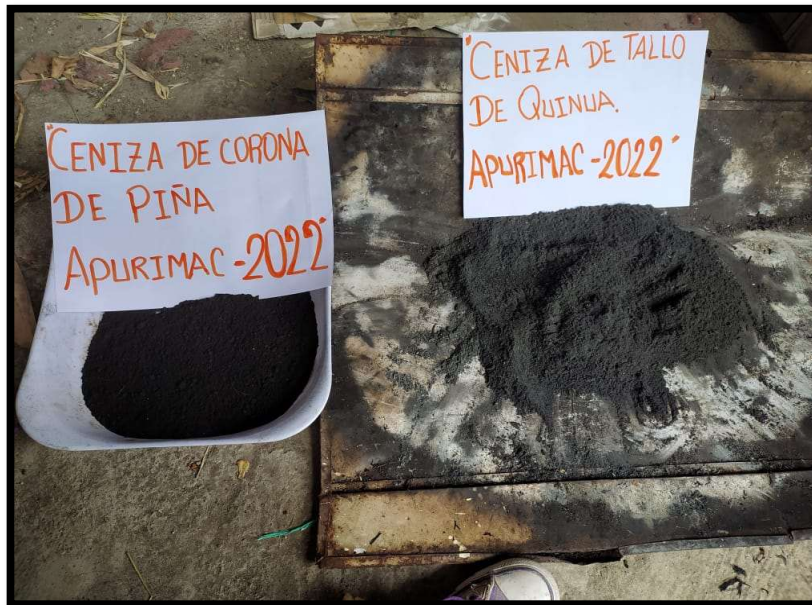 "CENIZA DE CORONA
DE PIÑA
APURIMAC-2022"
"CENIZA DE TALLO
DE QUINUA.
APURIMAC-2022"